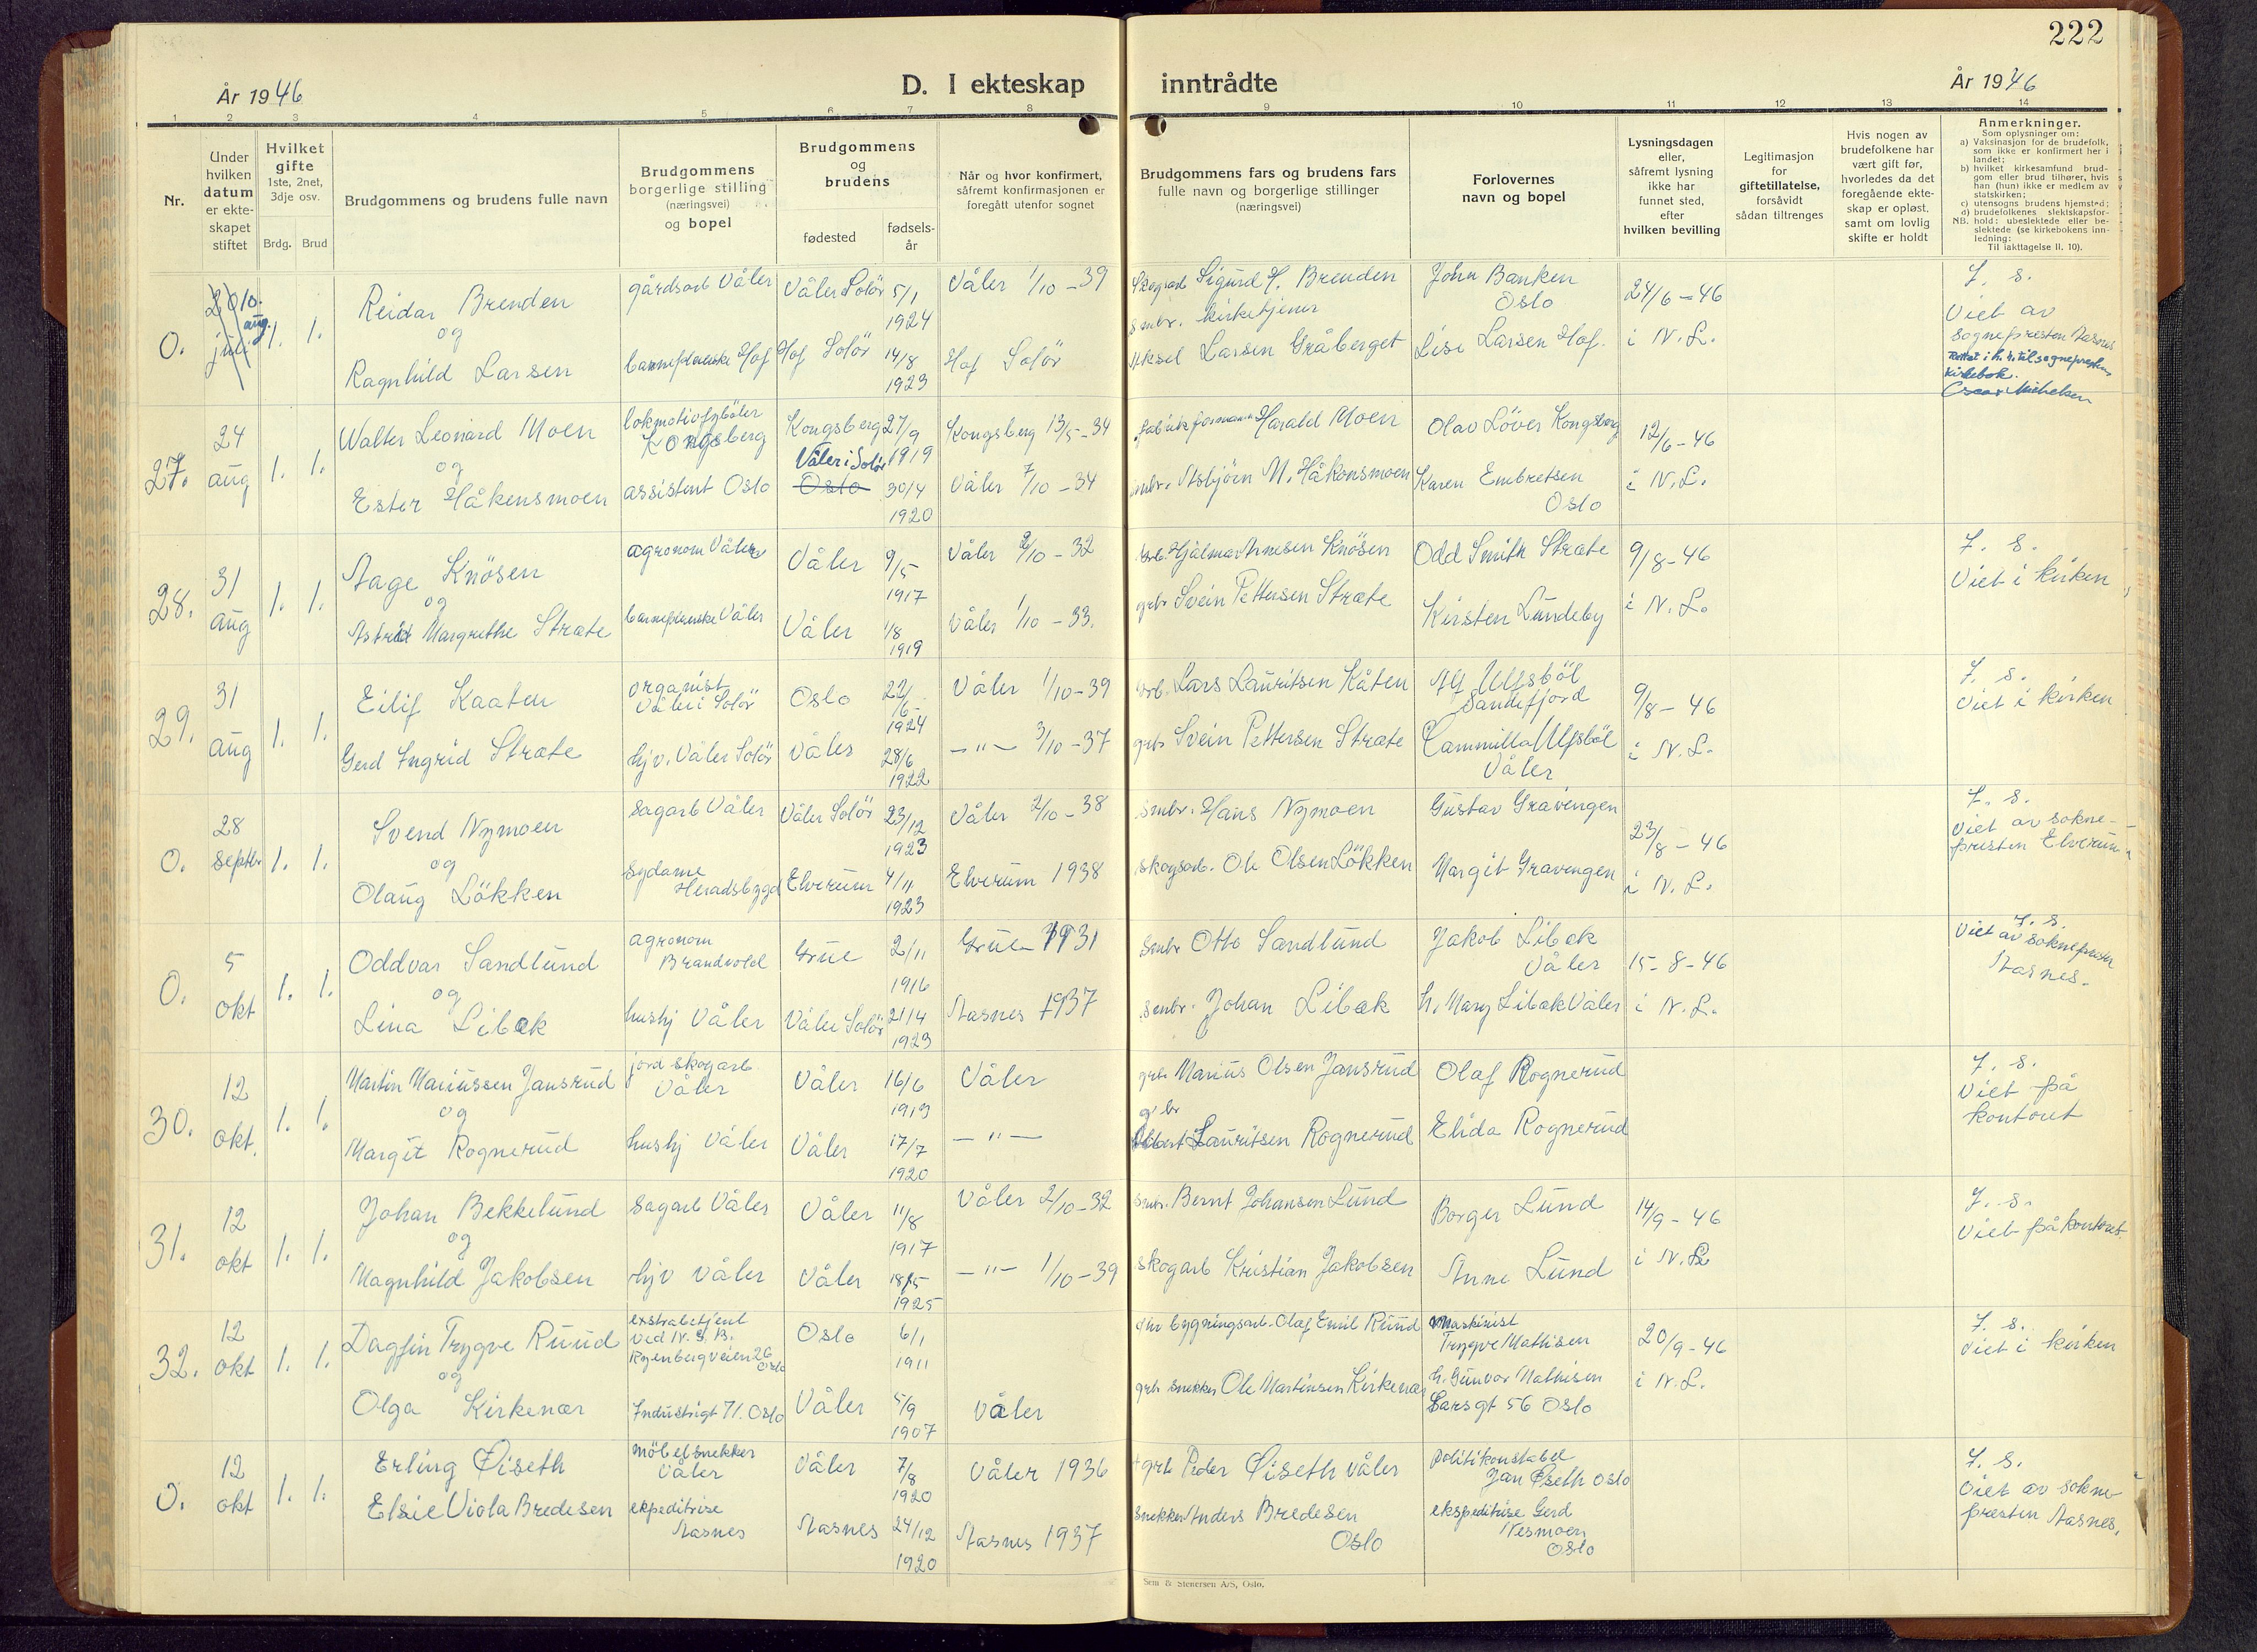 222
År 1946
D. I ekteskap inntrådte
År 1946
1 2 3 4 5 6 7 8 9 10 11 12 13 14
Nr.
Under
hvilken
datum
er ekte-
skapet
stiftet
Hvilket
gifte
1ste, 2net,
3dje osv.
Brdg. Brud
Brudgommens og brudens fulle navn
Brudgommens
borgerlige stilling
(næringsvei)
og bopel
Brudgommens
og
brudens
fødested
fødsels-
år
Når og hvor konfirmert,
såfremt konfirmasjonen er
foregått utenfor sognet
Brudgommens fars og brudens fars
fulle navn og borgerlige stillinger
(næringsvei)
Forlovernes
navn og bopel
Lysningsdagen
eller,
såfremt lysning
ikke har
funnet sted,
efter
hvilken bevilling
Legitimasjon
for
giftetillatelse,
forsåvidt
sådan tiltrenges
Hvis nogen av
brudefolkene har
vært gift før,
hvorledes da det
foregående ekte-
skap er opløst,
samt om lovlig
skifte er holdt
Anmerkninger.
Som oplysninger om:
a) Vaksinasjon for de brudefolk,
som ikke er konfirmert her i
landet;
b) hvilket kirkesamfund brud-
gom eller brud tilhører, hvis
han (hun) ikke er medlem av
statskirken;
c) utensogns brudens hjemsted;
d) brudefolkenes slektskapsfor-
NB. hold: ubeslektede eller be-
slektede (se kirkebokens inn-
ledning:
Til iakttagelse II, 10).
O.
juli
aug.
1. 1.
Reidar Brenden
og
Ragnhild Larsen
gårdsarb Våler
barnepleierske Hof
Våler Solör 5/1
1924
Hof Solör 14/8
1923
Våler 1/10 - 39
Hof Solör
Sigurd H. Brenden
smbr. kirketjener
Aksel Larsen Gråberget
John Banken
Oslo
Lise Larsen Hof.
24/6 - 46
i N. L.
F. s.
Viet av
sognepresten Aasnes
Rettet i h. t. til sogneprestens
kirkebok.
27.
24
aug
1. 1.
Walter Leonard Moen
og
Ester Håkensmoen
lokmotivfyböter
Kongsberg
assistent Oslo
Kongsberg 27/9
1919
Våler i Solör
Oslo 30/4
1920
Kongsberg 13/5 - 34
Våler 7/10 - 34
fabrikformann Harald Moen
smbr. Asbjörn M. Håkonsmoen
Olav Löver Kongsberg
Karen Embretsen
Oslo
12/6 - 46
i N. L.
28.
31
aug
1. 1.
Aage Knösen
og
Astrid Margrethe Stræte
agronom Våler
barnepleierske Våler
Våler 9/5
1917
Våler 1/8
1919
Våler 2/10 - 32
Våler 1/10 - 33.
Hjalmar Arnesen Knösen
grbr Svein Pettersen Stræte
Odd Smith Stræte
Kirsten Lundeby
9/8 - 46
i N. L.
F. s.
Viet i kirken
29.
31
aug
1. 1.
Eilif Kaaten
Gerd Ingrid Stræte
organist
Våler i Solör
hjv. Våler Solör
Oslo 22/6
1924
Våler 28/6
1922
Våler 1/10 - 39
- " - 3/10 - 37
Lars Lauritsen Kåten
grb Svein Pettersen Stræte
Alf Ulfsböl
Sandefjord
Cammilla Ulfsböl
Våler
9/8 - 46
i N. L.
F. s.
Viet i kirken
O.
28
septbr
1. 1.
Svend Nymoen
og
Olaug Lökken
sagarb Våler
sydame
Heradsbygd
Våler Solör 23/12
1923
Elverum 4/11
1923
Våler 2/10 - 38
Elverum 1938
Smbr. Hans Nymoen
skogsarb. Ole Olsen Lökken
Gustav Gravengen
Margit Gravengen
23/8 - 46
i N. L.
F. s.
Viet av sokne-
presten Elverum
O.
5
okt
1. 1.
Oddvar Sandlund
og
Lina Libæk
agronom
Brandvold
hushj Våler
Grue 2/11
1916
Våler Solör 21/4
1923
Grue 1931
Aasnes 1937
Smbr Otto Sandlund
smbr. Johan Libæk
Jakob Libæk
Våler
h. Mary Libæk Våler
15-8-46
i N. L.
F. s.
Viet av soknepresten
Aasnes.
30.
12
okt.
1. 1.
Martin Mariussen Jansrud
og
Margit Rognerud
jord skogarb.
Våler
hushj Våler
Våler 16/6
1913
Våler 17/7
1920
Våler
- " -
grb. Marius Olsen Jansrud
g. br
Lauritsen Rognerud
Olaf Rognerud
Elida Rognerud
F. s.
Viet på
kontoret
31.
12
okt
1. 1.
Johan Bekkelund
og
Magnhild Jakobsen
sagarb Våler
hjv Våler
Våler 11/8
1917
Våler 18/5
1925
Våler 2/10 - 32
- " - 1/10 - 39
smbr. Bernt Johansen Lund
skogarb Kristian Jakobsen
Borger Lund
Anne Lund
14/9 - 46
i N. L
F. s.
Viet på kontoret
32.
12
okt
1. 1.
Dagfin Trygve Ruud
og
Olga Kirkenær
exstrabetjent
ved N. S. B.
Ryenbergveien 26
Oslo
Industrigt 71. Oslo
Oslo 6/1
1911
Våler 5/9
1907
Våler
bygningsarb. Olaf Emil Ruud
grb. snekker Ole Martinsen Kirkenær
Maskinist
Trygve Mathisen
h. Gunvor Mathisen
Larsgt 56 Oslo
20/9 - 46
i N. L.
F. s.
Viet i kirken
O.
12
okt
1. 1.
Erling Øiseth
Elsie Viola Bredesen
möbelsnekker
Våler
ekpeditrise
Aasnes
Våler 7/8
1920
Aasnes 24/12
1920
Våler 1936
Aasnes 1937
grb Peder Øiseth Våler
snekker Anders Bredesen
Oslo
politikonstabel
Jan Øiseth Oslo
ekspeditrise Gerd
Nesmoen
Oslo
F. s.
Viet av sokne-
presten Aasnes.
Sem & Stenersen A/S, Oslo.